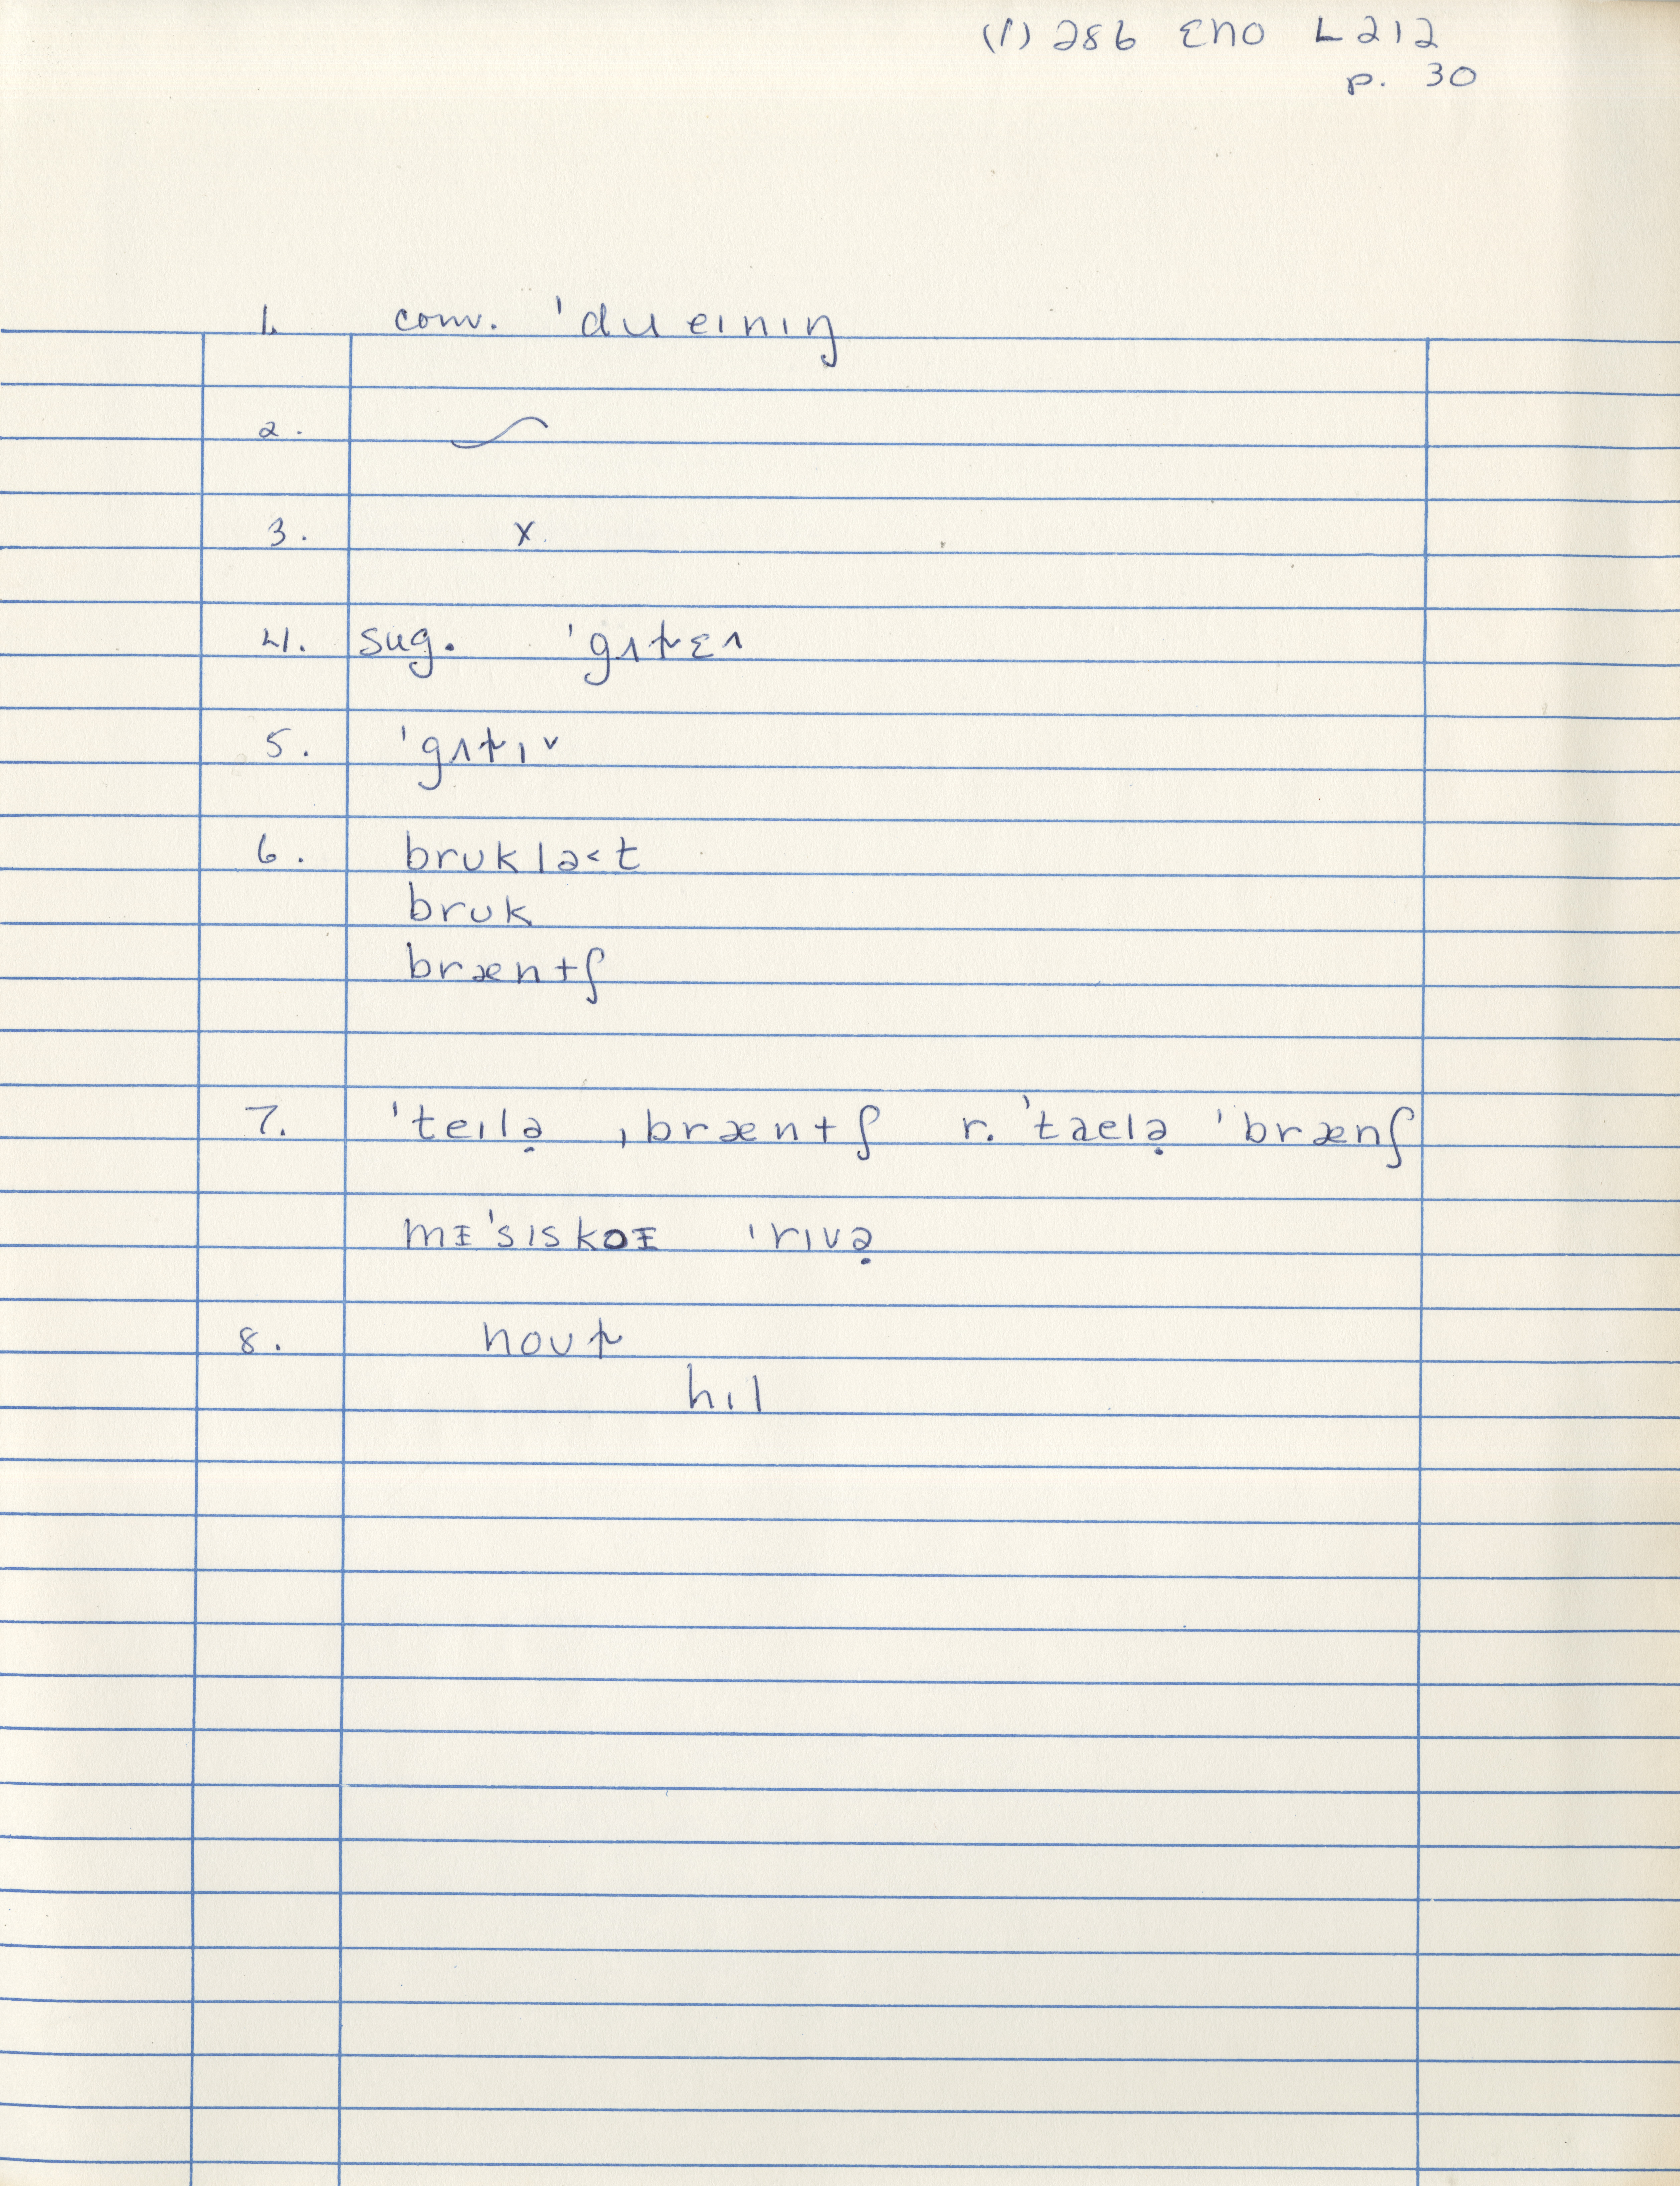 (1) 286 ENO L212
p. 30
1. conv. ˈdueɪnɪŋ
2. ~
3. x
4. sug. ˈgʌt̬ɛ˄
5. ˈgʌt̬ɪ˅
6. brʊklə˂t
brʊk
bræntʃ
7. ˈteɪlə̣ ˌbræntʃ r. ˈtaelə̣ ˈbrænʃ
mᵻˈsɪskoᵻ ˈrɪvə̣
8. noʊt̬
hɪl